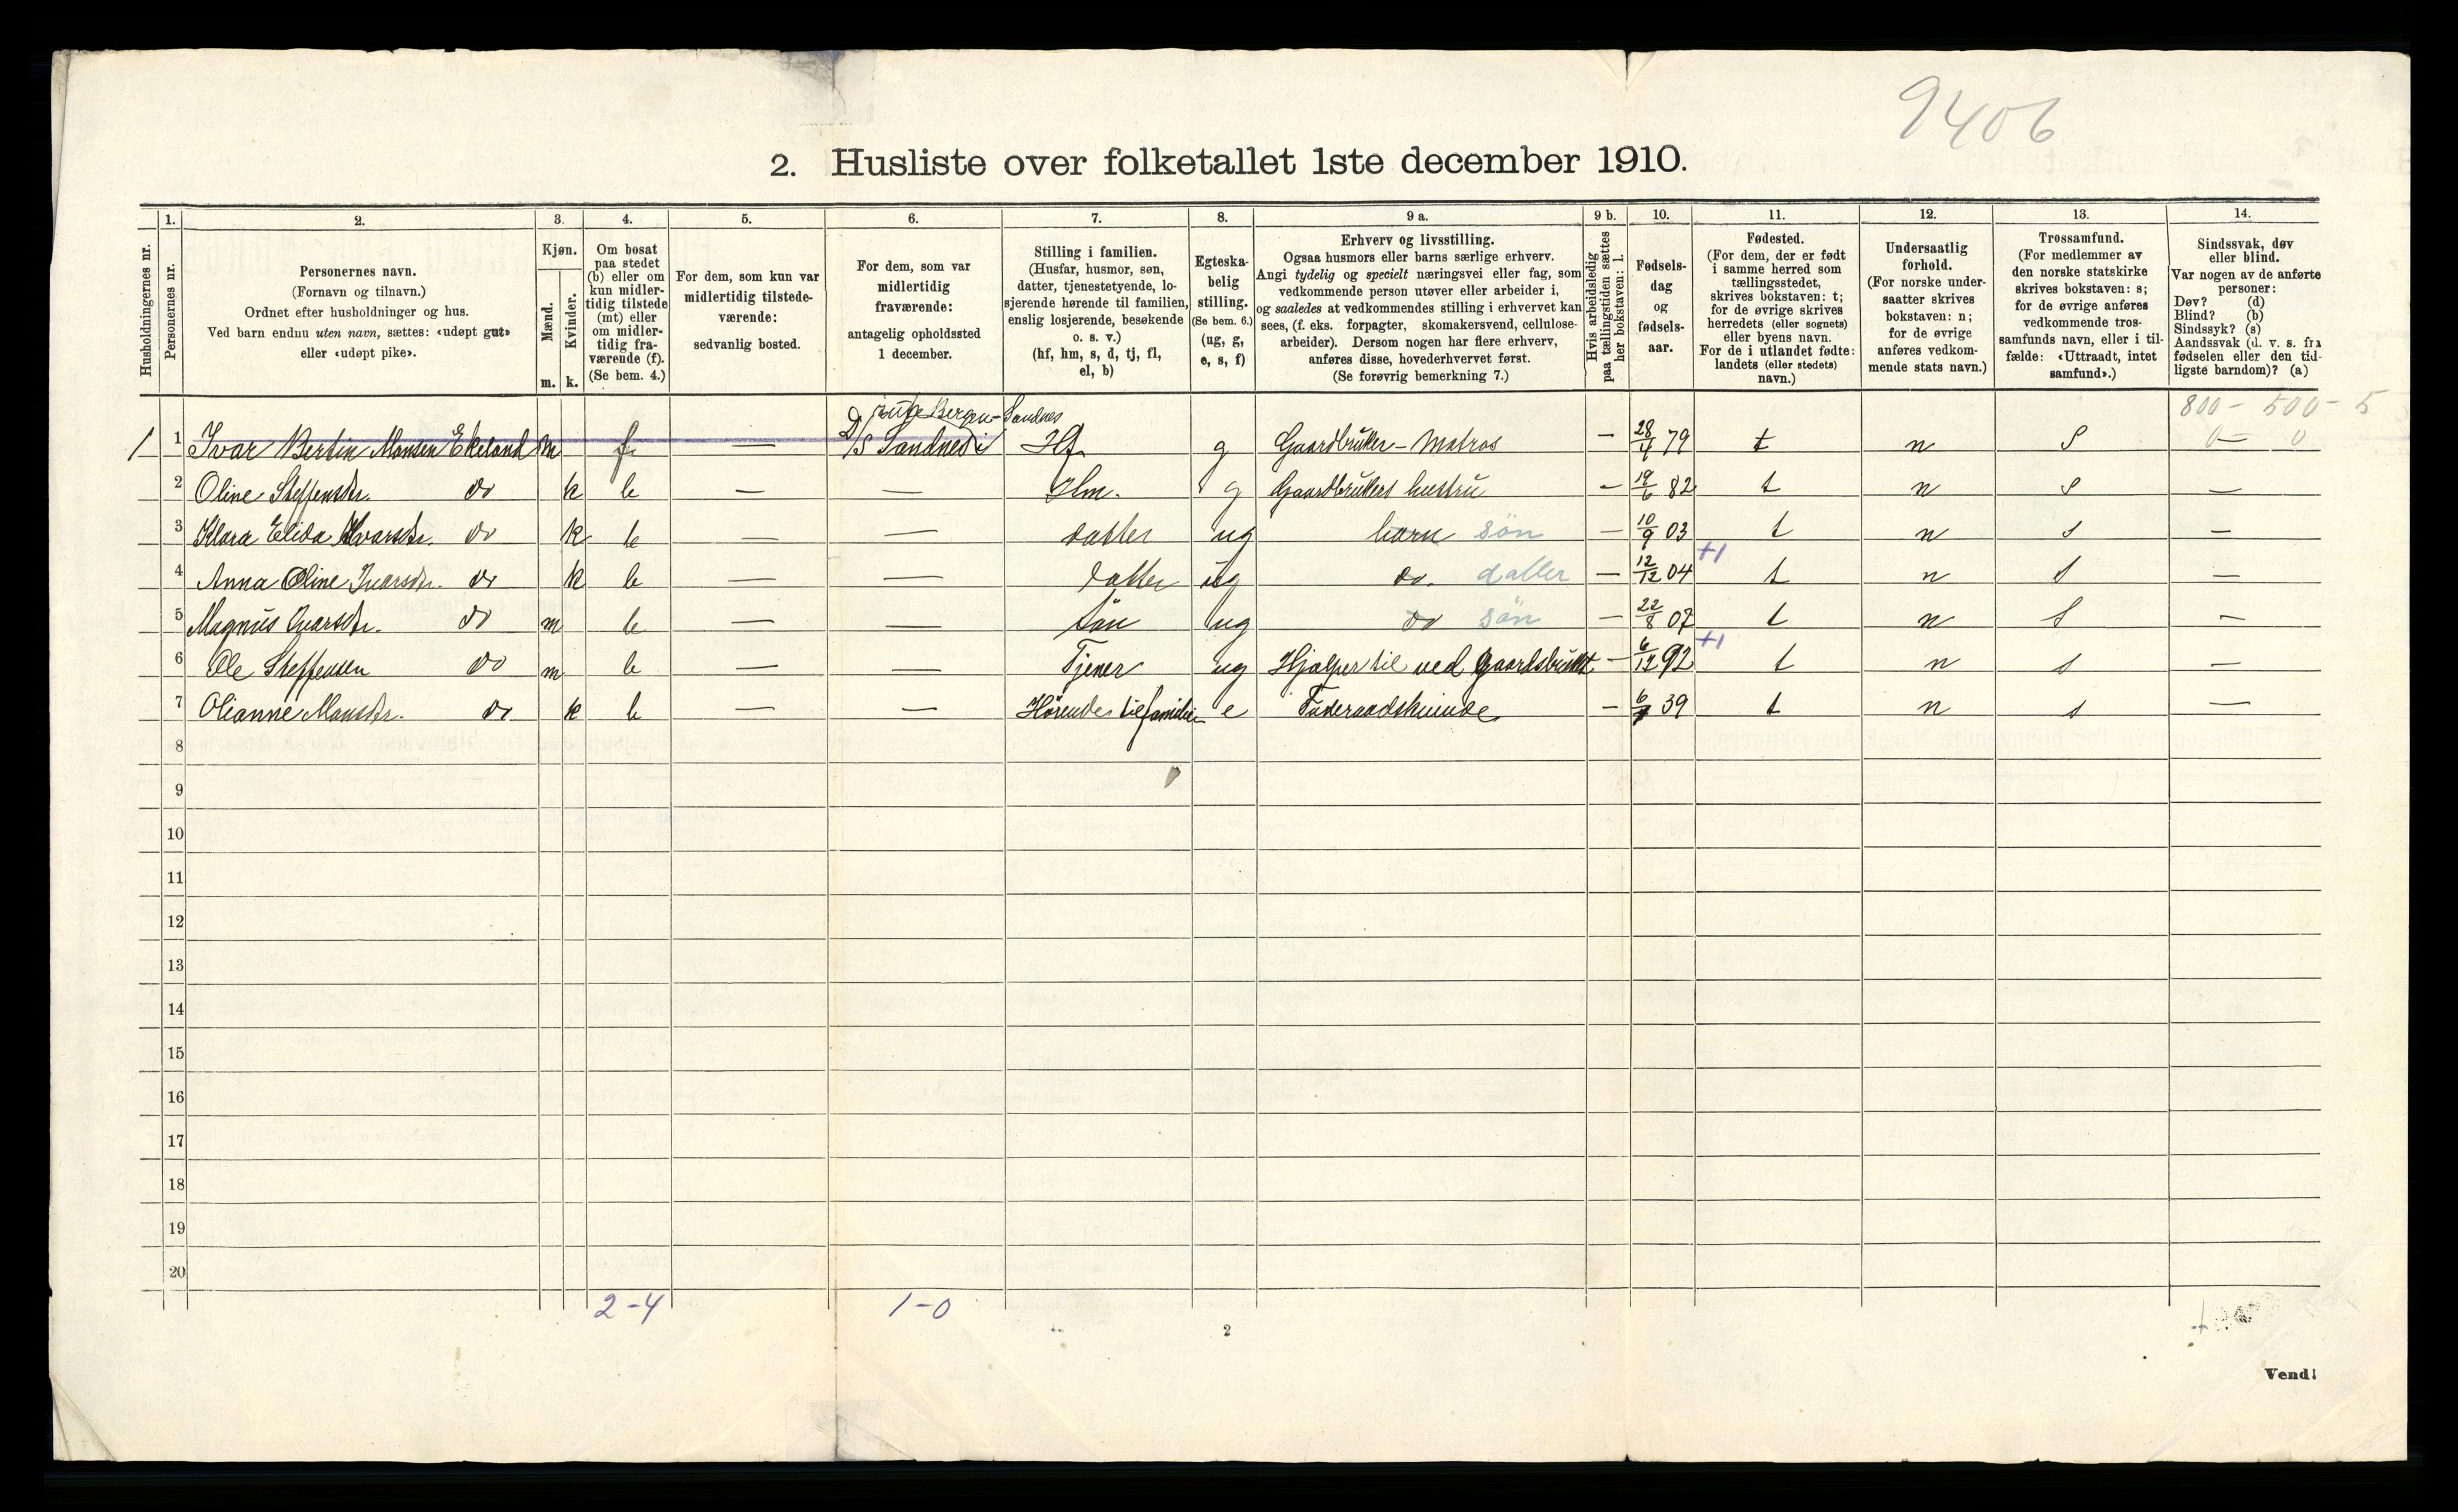 9406
2. Husliste over folketallet 1ste december 1910.
Husholdningernes nr.
1.
Personernes nr.
2.
Personernes navn.
(Fornavn og tilnavn.)
Ordnet efter husholdninger og hus.
Ved barn endnu uten navn, sættes: «udøpt gut»
eller «udøpt pike».
3.
Kjøn.
Mænd.
m.
Kvinder.
k.
4.
Om bosat
paa stedet
(b) eller om
kun midler-
tidig tilstede
(mt) eller
om midler-
tidig fra-
værende (f).
(Se bem. 4.)
5.
For dem, som kun var
midlertidig tilstede-
værende:
sedvanlig bosted.
6.
For dem, som var
midlertidig
fraværende:
antagelig opholdssted
1 december.
7.
Stilling i familien.
(Husfar, husmor, søn,
datter, tjenestetyende, lo-
sjerende hørende til familien,
enslig losjerende, besøkende
o. s. v.)
(hf, hm, s, d, tj, fl,
el, b)
8.
Egteska-
belig
stilling.
(Se bem. 6.)
(ug, g,
e, s, f)
9 a.
Erhverv og livsstilling.
Ogsaa husmors eller barns særlige erhverv.
Angi tydelig og specielt næringsvei eller fag, som
vedkommende person utøver eller arbeider i,
og saaledes at vedkommendes stilling i erhvervet kan
sees, (f. eks. forpagter, skomakersvend, cellulose-
arbeider). Dersom nogen har flere erhverv,
anføres disse, hovederhvervet først.
(Se forøvrig bemerkning 7.)
9 b.
Hvis arbeidsledig
paa tællingstiden sættes
her bokstaven: l.
10.
Fødsels-
dag
og
fødsels-
aar.
11.
Fødested.
(For dem, der er født
i samme herred som
tællingsstedet,
skrives bokstaven: t;
for de øvrige skrives
herredets (eller sognets)
eller byens navn.
For de i utlandet fødte:
landets (eller stedets)
navn.)
12.
Undersaatlig
forhold.
(For norske under-
saatter skrives
bokstaven: n;
for de øvrige
anføres vedkom-
mende stats navn.)
13.
Trossamfund.
(For medlemmer av
den norske statskirke
skrives bokstaven: s;
for de øvrige anføres
vedkommende tros-
samfunds navn, eller i til-
fælde: «Uttraadt, intet
samfund».)
14.
Sindssvak, døv
eller blind.
Var nogen av de anførte
personer:
Døv? (d)
Blind? (b)
Sindssyk? (s)
Aandssvak (d. v. s. fra
fødselen eller den tid-
ligste barndom)? (a)
800 - 500 - 5
rute Bergen - Sandnes
1 1 Ivar Bertin Monsen Ekeland m f — D/S Sandnes Hf g Gaardbruker - Matros — 28/4 79 t n S 0 — 0
2 Oline Steffensdr. do k b — — Hm. g Gaardbrukers hustru — 19/6 82 t n s —
3 Klara Elida Ivarsdr. do k b — — datter ug barn søn — 10/9 03 t n s —
4 Anna Oline Ivarsdr. do k b — — datter ug do. datter — 12/12 04 +1 t n s —
5 Magnus Ivarsdr. do m b — — søn ug do søn — 22/8 07 t n s —
6 Ole Steffensen do m b — — Tjener ug Hjælper til ved gaardsbruket — 6/12 92 +1 t n s —
7 Olianne Monsdr. do k b — — Hørende til familien e Føderaadskvinde — 39 t n s —
8
9
10
11
12
13
14
15
16
17
18
19
20
2-4 1-0
2
Vend!